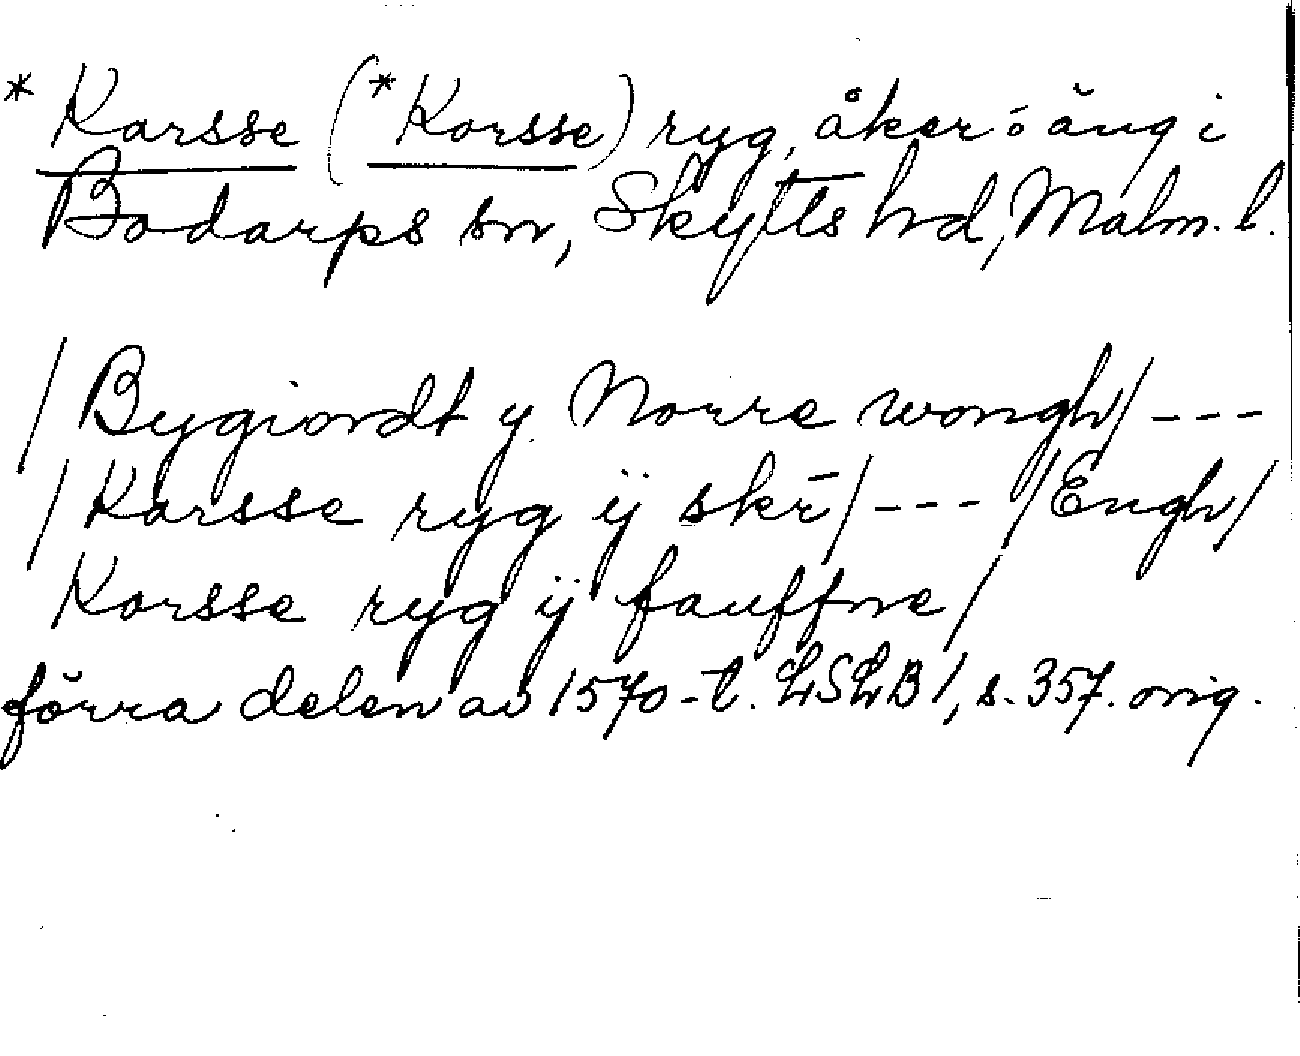 * Karsse (*Korsse) ryg, åker o äng i
Bodarps sn, Skytts hd, Malm. l.
/Bygiordt y Norre wongh/ ---
/Karsse ryg ÿ skr̄/ --- /Engh/
Korsse ryg ÿ fauffne/
förra delen av 1570-t. LSLB 1, s. 357. orig.